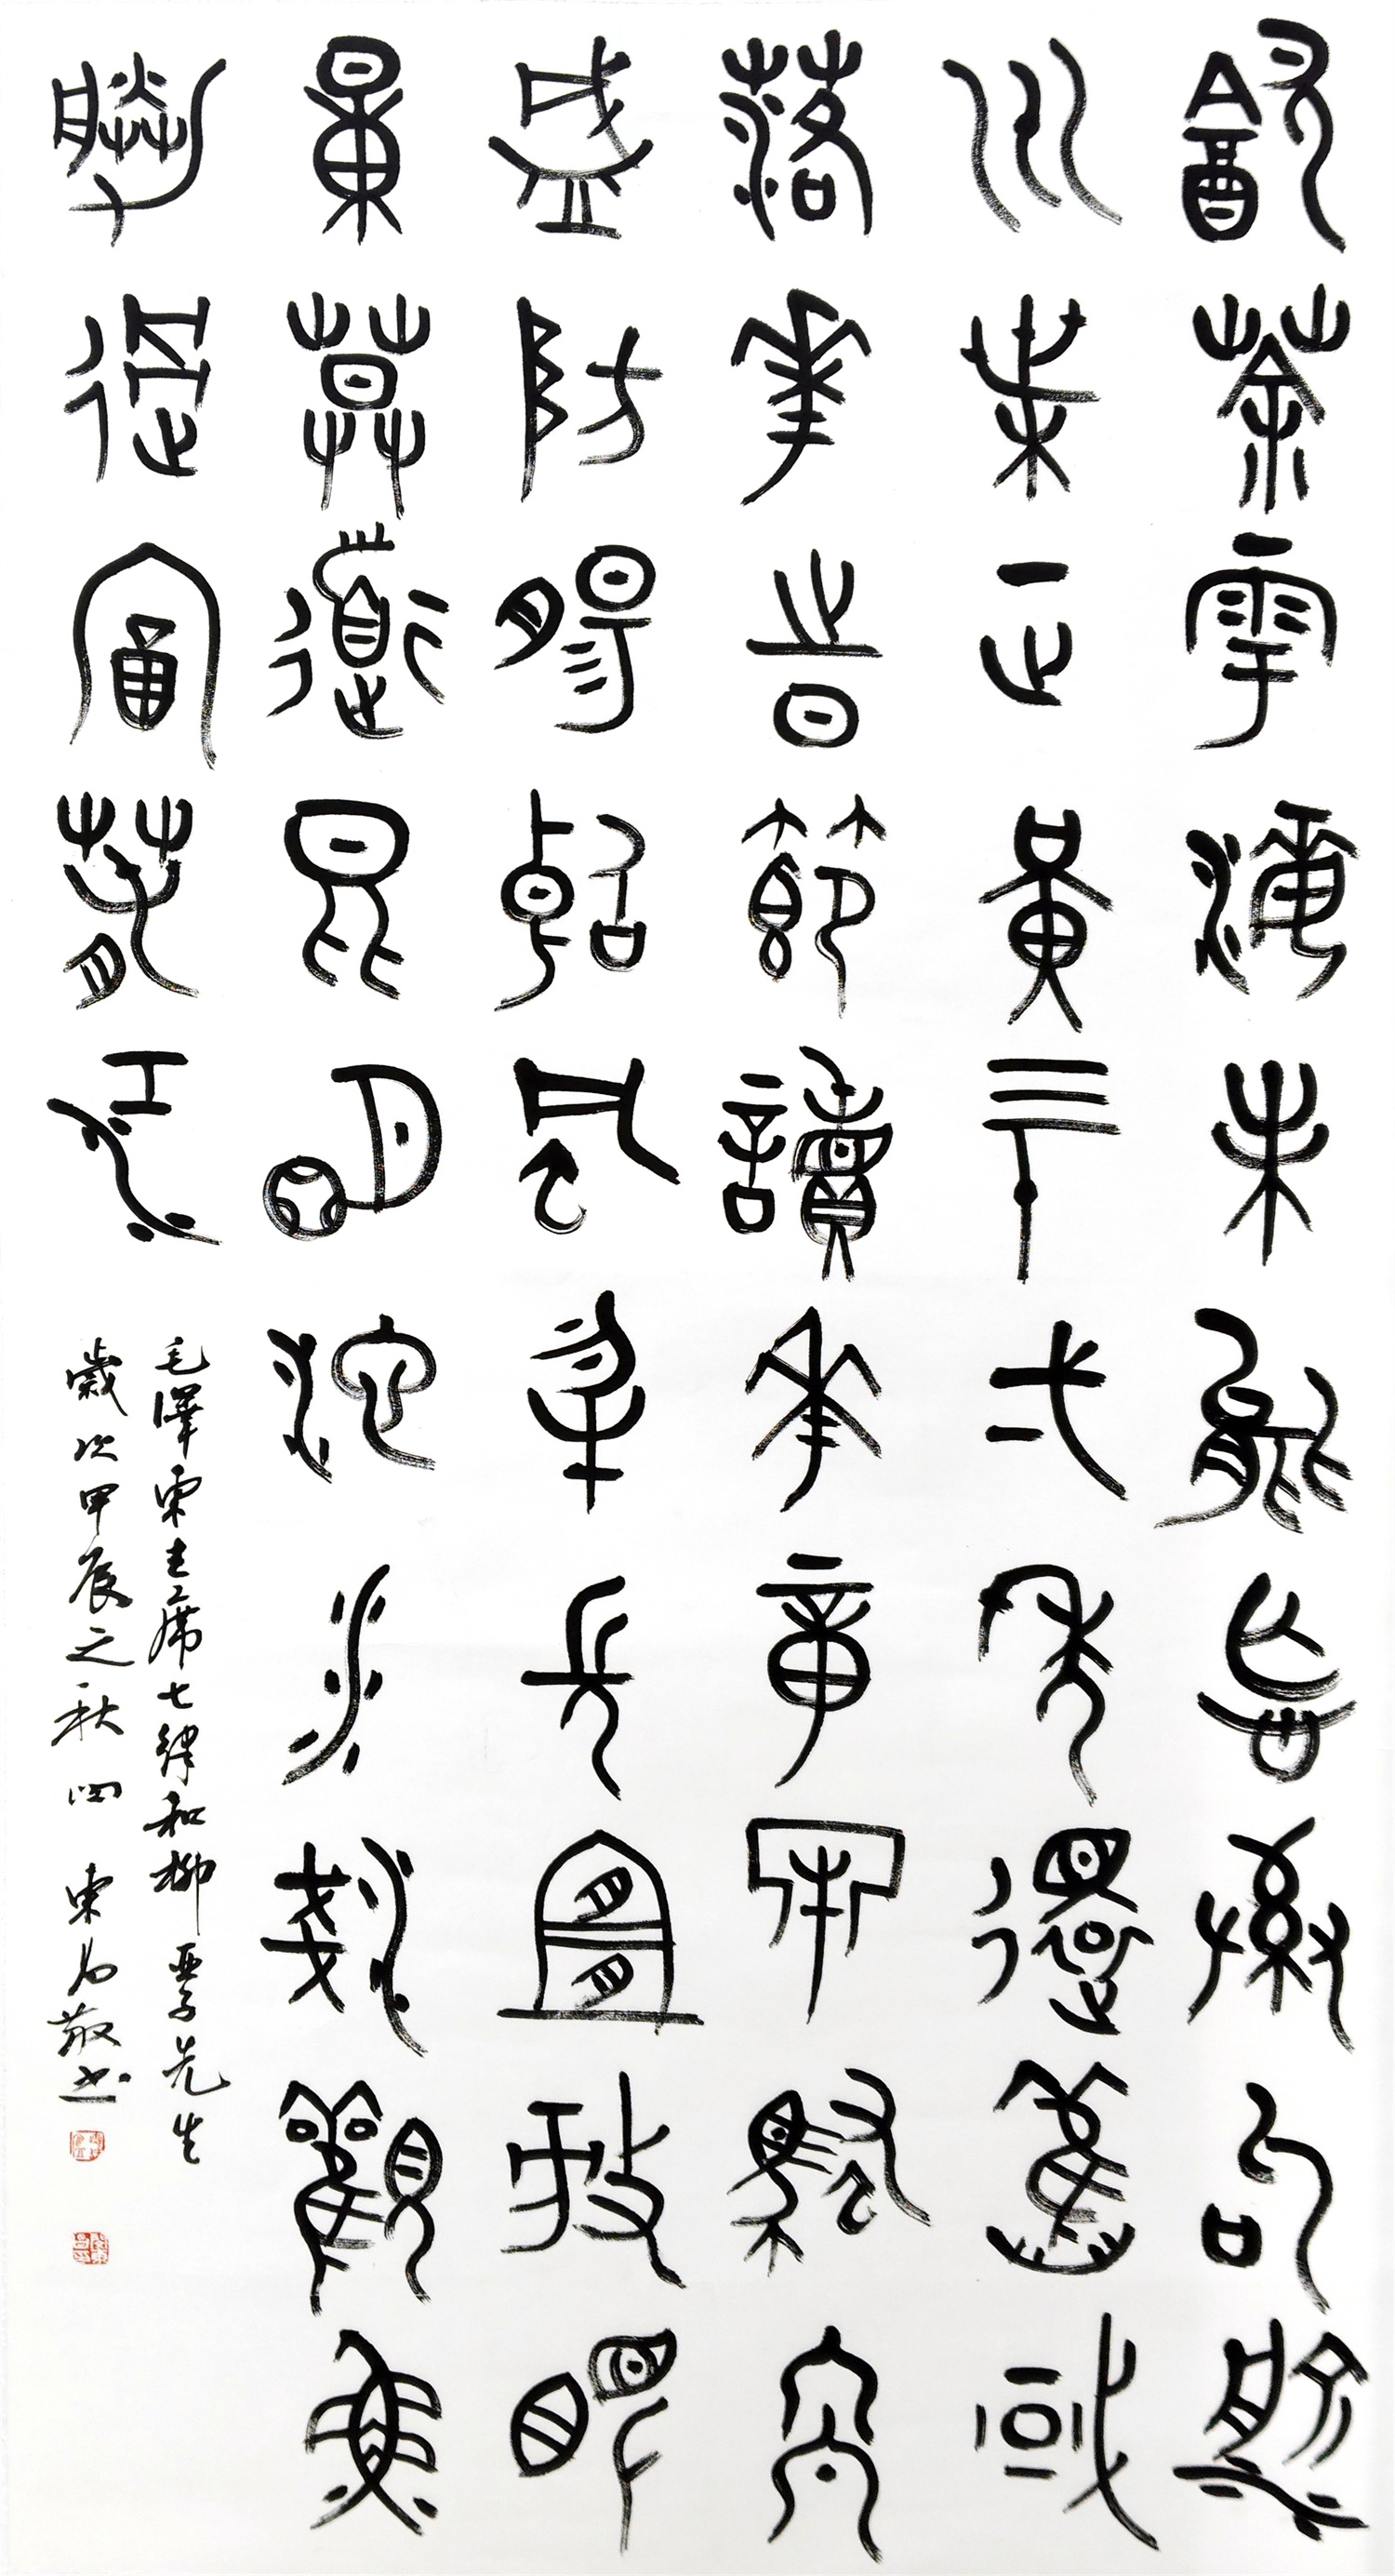 飲茶粵海未能忘索句渝
州葉正黃三十弌年還舊國
落花時節讀華章牢騷太
盛防腸斷風物長宜放眼
量莫道昆明池水淺觀魚
勝過富春江
毛澤東主席七律和柳亞子先生
歲次甲辰之秋閆東敬書